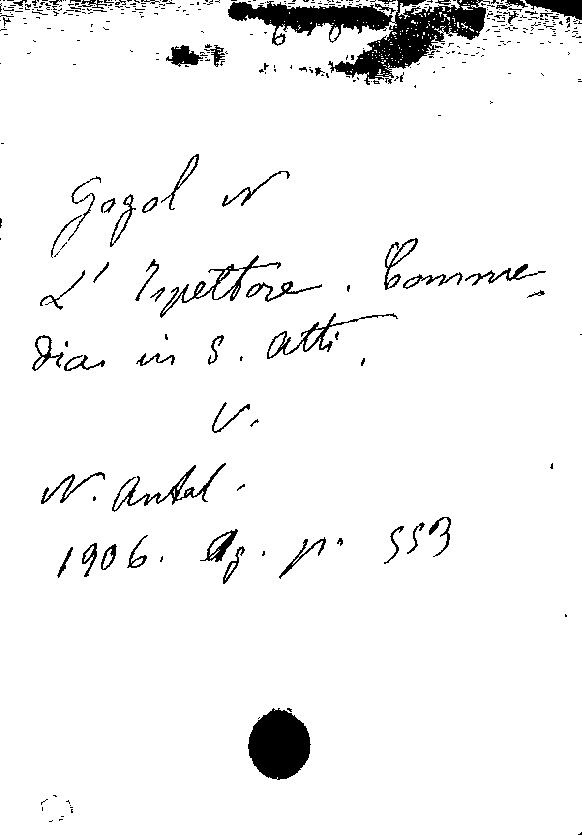 Gogol N
L' Ispettore. Comme-
dia in 5. atti.
V.
N. Antol.
1906. Ag. p. 553